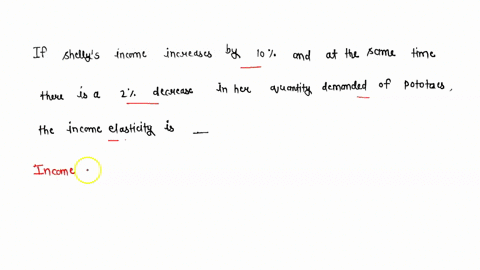 If Shelly's income increases by 10% and at the same time
there is a 2% decrease in her quantity demanded of potatoes,
the income elasticity is __
Income